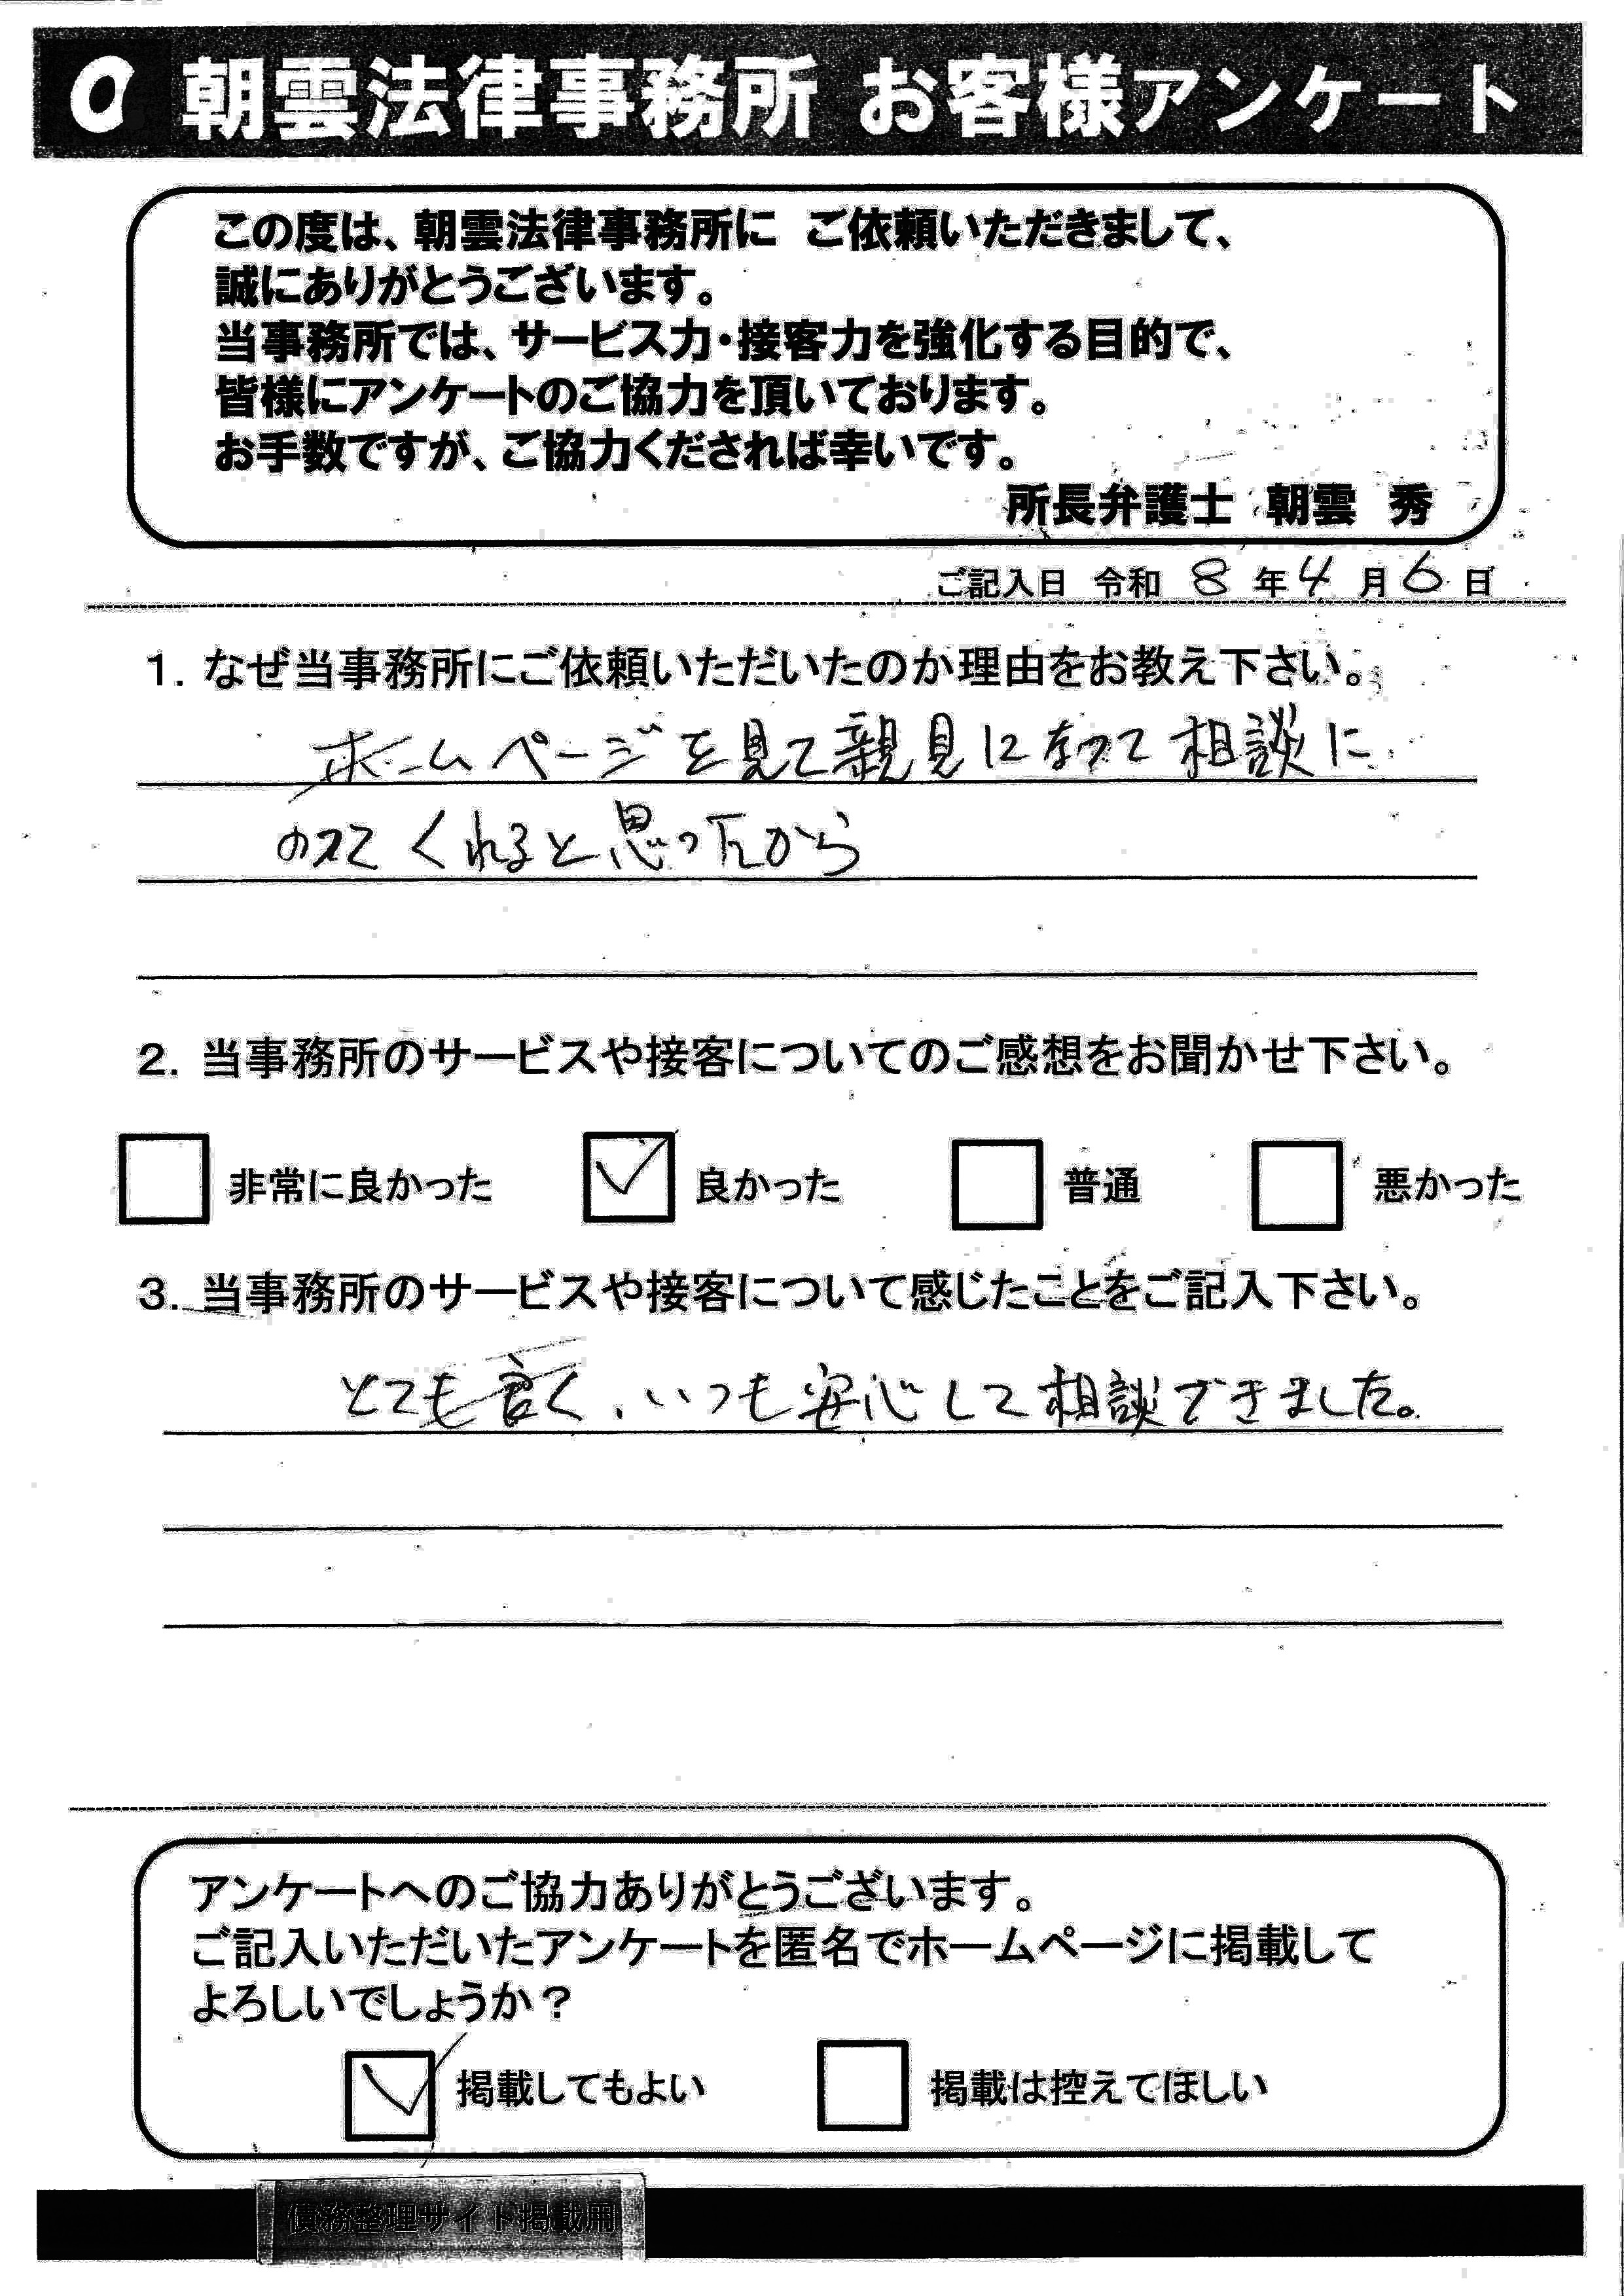 朝雲法律事務所 お客様アンケート
この度は、朝雲法律事務所に ご依頼いただきまして、
誠にありがとうございます。
当事務所では、サービス力・接客力を強化する目的で、
皆様にアンケートのご協力を頂いております。
お手数ですが、ご協力くだされば幸いです。
所長弁護士 朝雲 秀
ご記入日 令和 8 年 4 月 6 日
1. なぜ当事務所にご依頼いただいたのか理由をお教え下さい。
ホームページを見て親見になって相談に
のってくれると思ったから
2. 当事務所のサービスや接客についてのご感想をお聞かせ下さい。
非常に良かった 良かった 普通 悪かった
3. 当事務所のサービスや接客について感じたことをご記入下さい。
とても良く、いつも安心して相談できました。
アンケートへのご協力ありがとうございます。
ご記入いただいたアンケートを匿名でホームページに掲載して
よろしいでしょうか？
掲載してもよい 掲載は控えてほしい
債務整理サイト掲載用